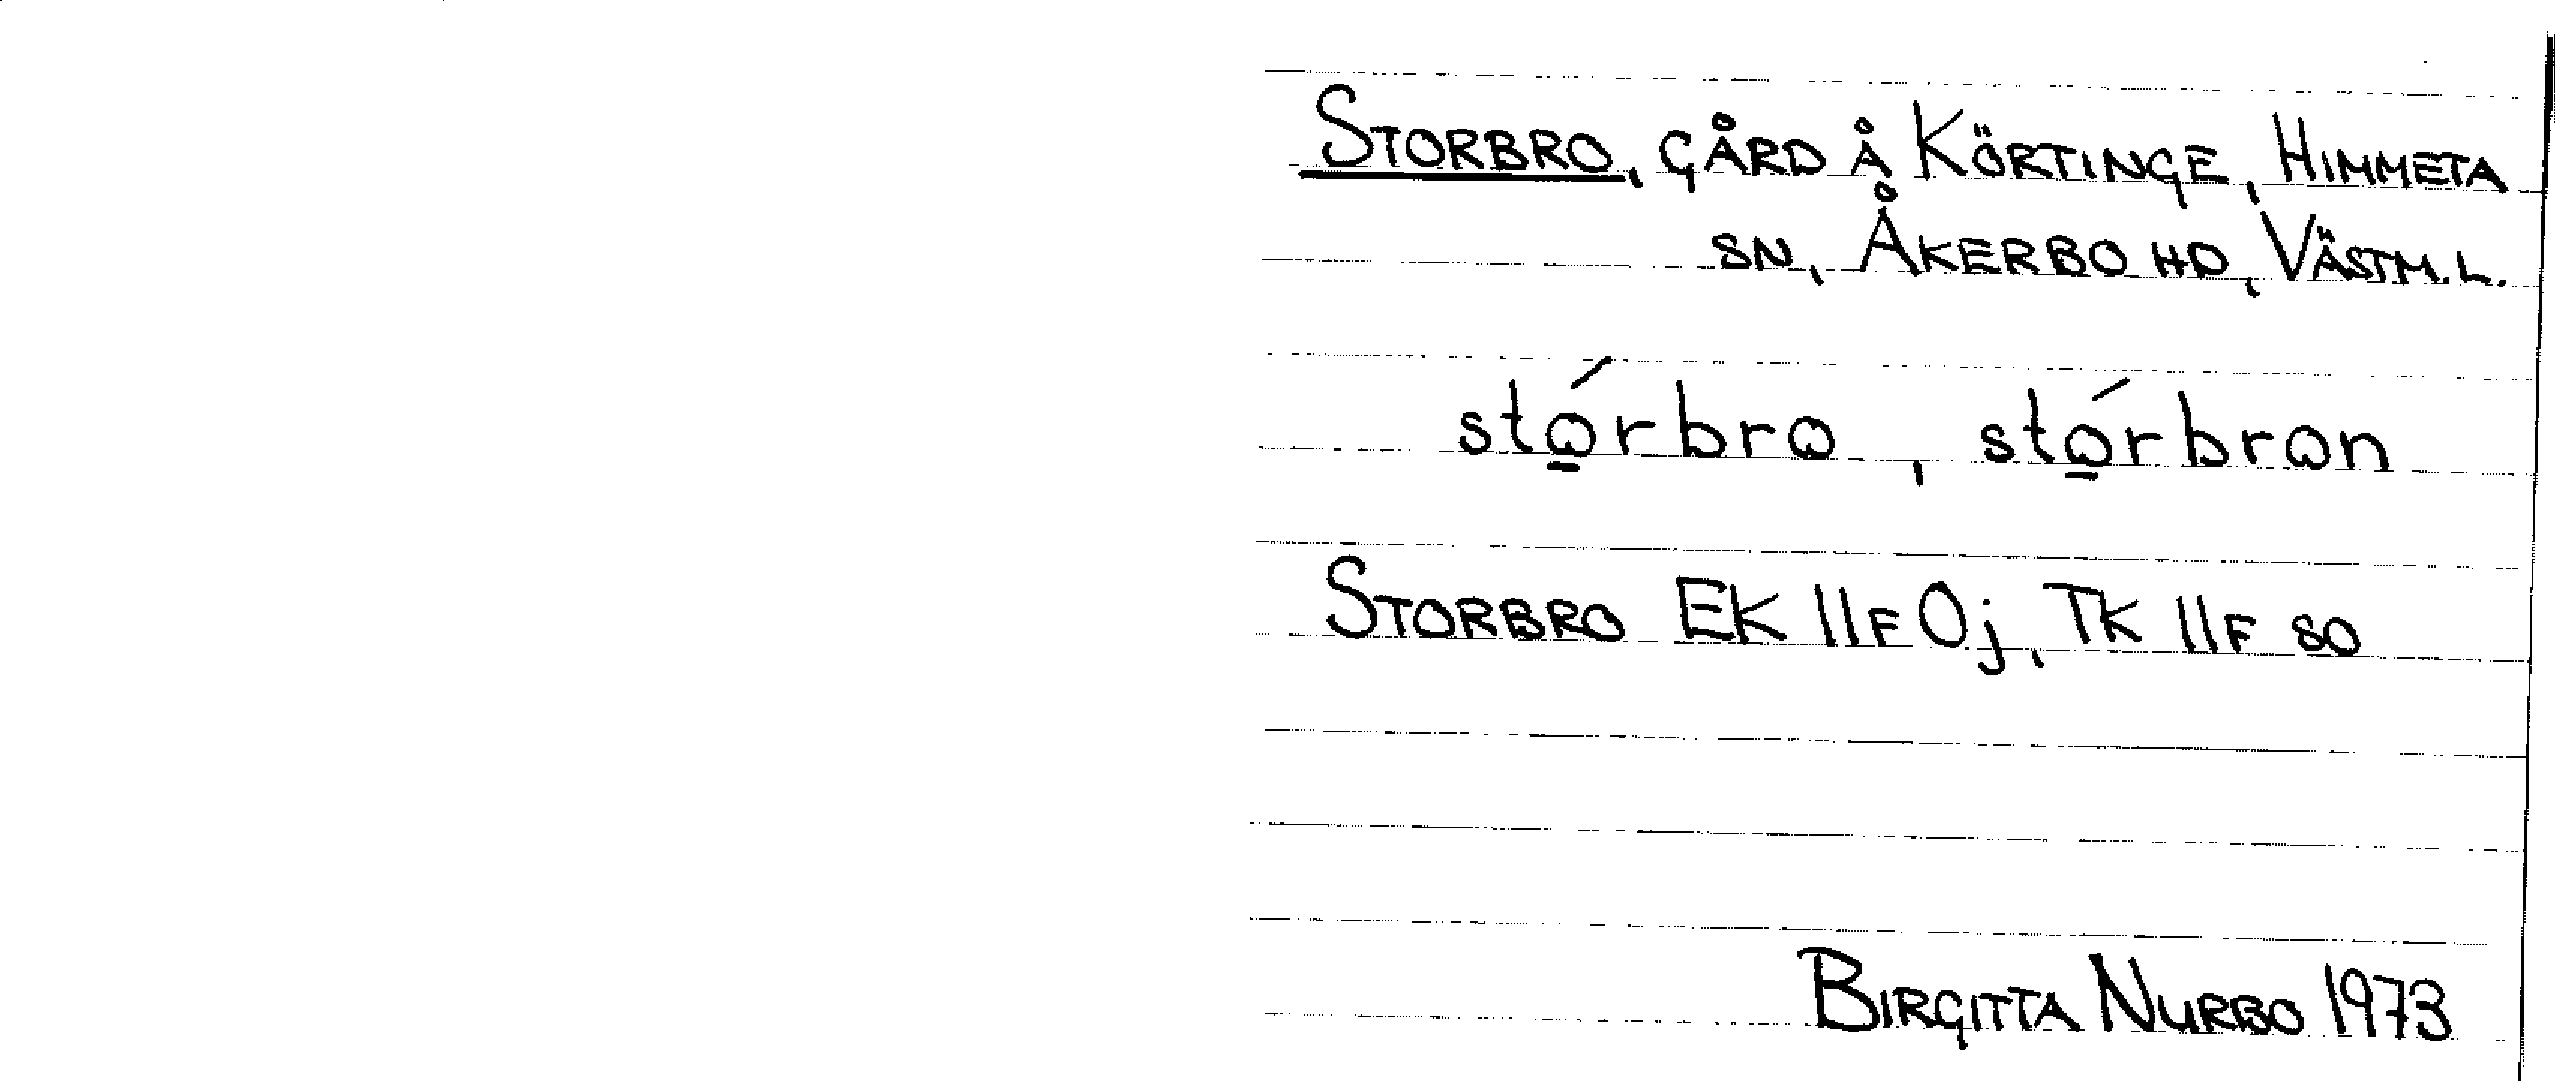 STORBRO, GÅRD Å KÖRTINGE, HIMMETA
SN, ÅKERBO HD, VÄSTM.L.
stó̲rbrɷ, stó̲rbrɷn
STORBRO EK 11F 0j, TK 11F SO
BIRGITTA NURBO 1973